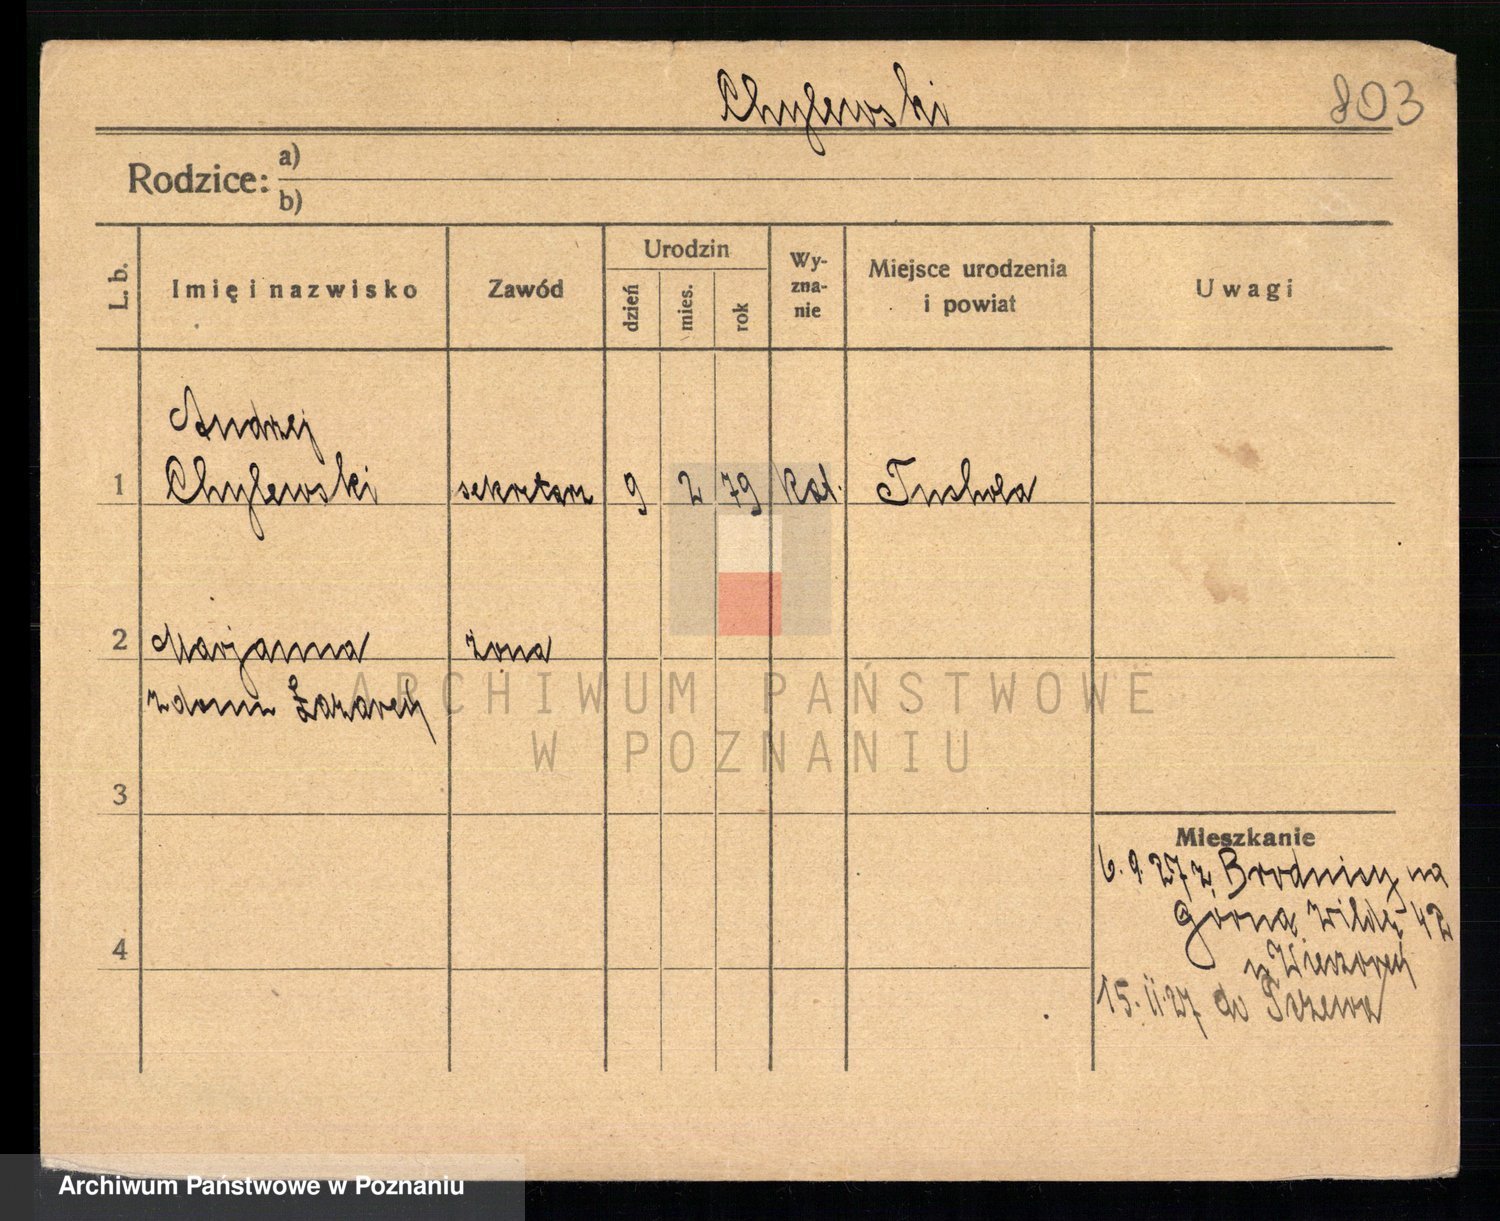 Chylewski 803
Rodzice: a)
b)
L. b.
Imię i nazwisko
Zawód
Urodzin
dzień
mies.
rok
Wy-
zna-
nie
Miejsce urodzenia
i powiat
Uwagi
Andrzej
1 Chylewski sekretarz 9 2 79 kat. Tuchola
2 Marjanna żona
z domu
3
4
Mieszkanie
6.9.27 z Brodnicy na
Górną Wildę 42
u
15.11.27 do Tczewa
ARCHIWUM PAŃSTWOWE
W POZNANIU
Archiwum Państwowe w Poznaniu